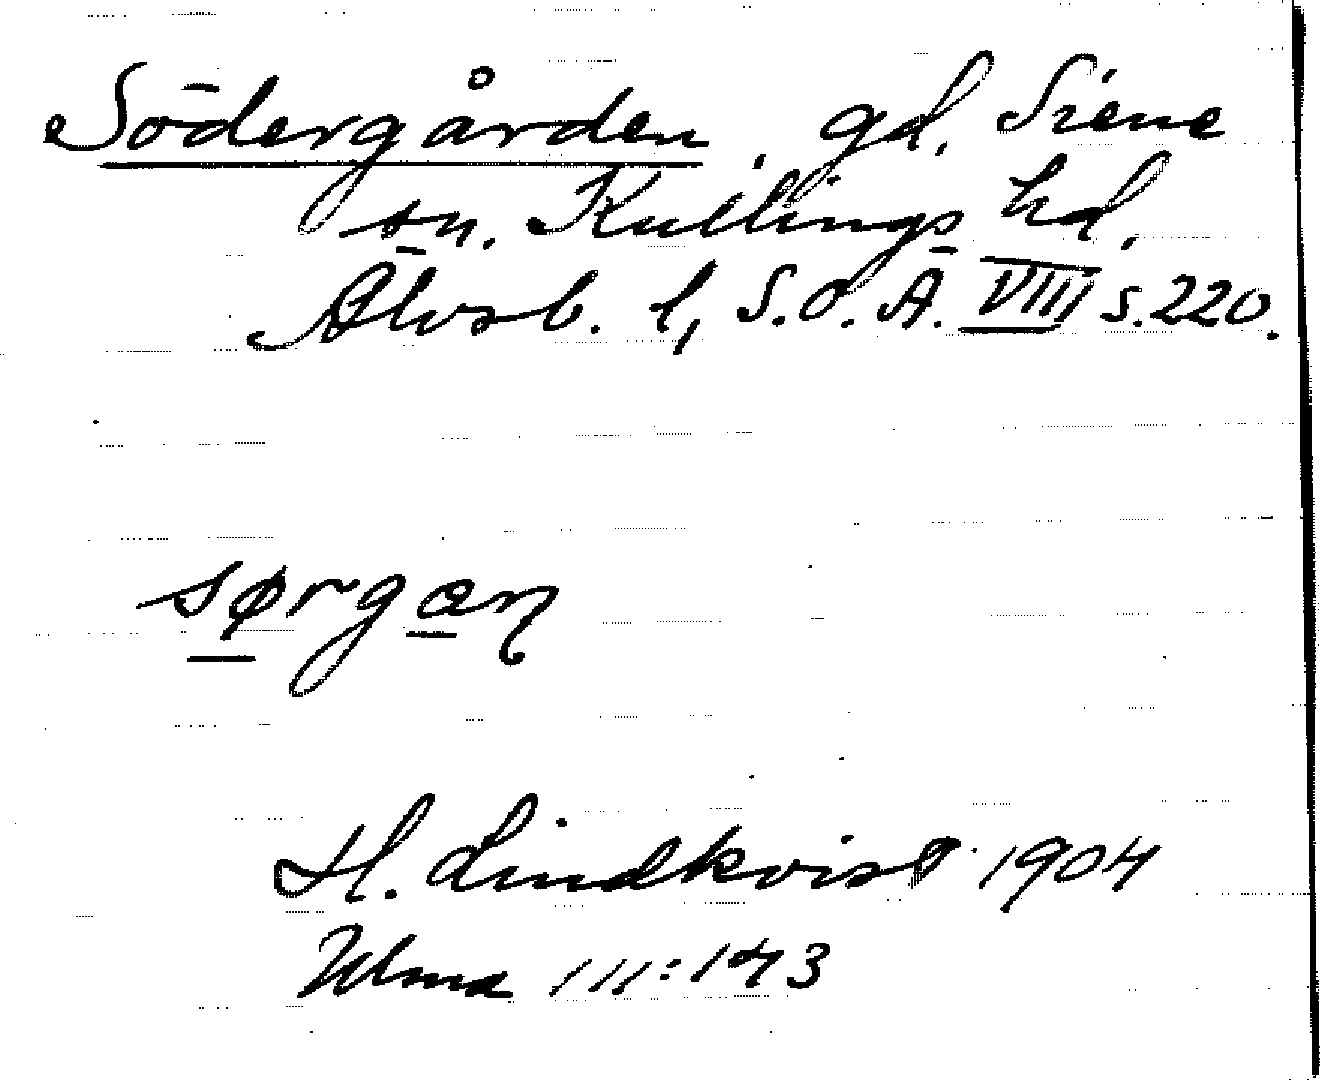 Södergården, gd, Siene
sn. Kullings hd,
Älvsb. l, S.O.Ä. VIII s.220.
sørgaŋ
H. Lindkvist 1904
Ulma 111:143